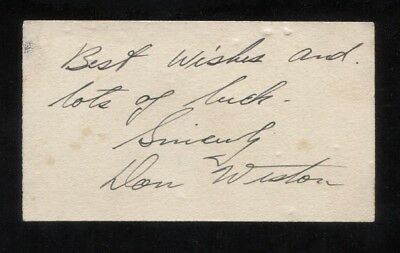 Best Wishes and.
lots of luck.
Sincerely
Don Weston